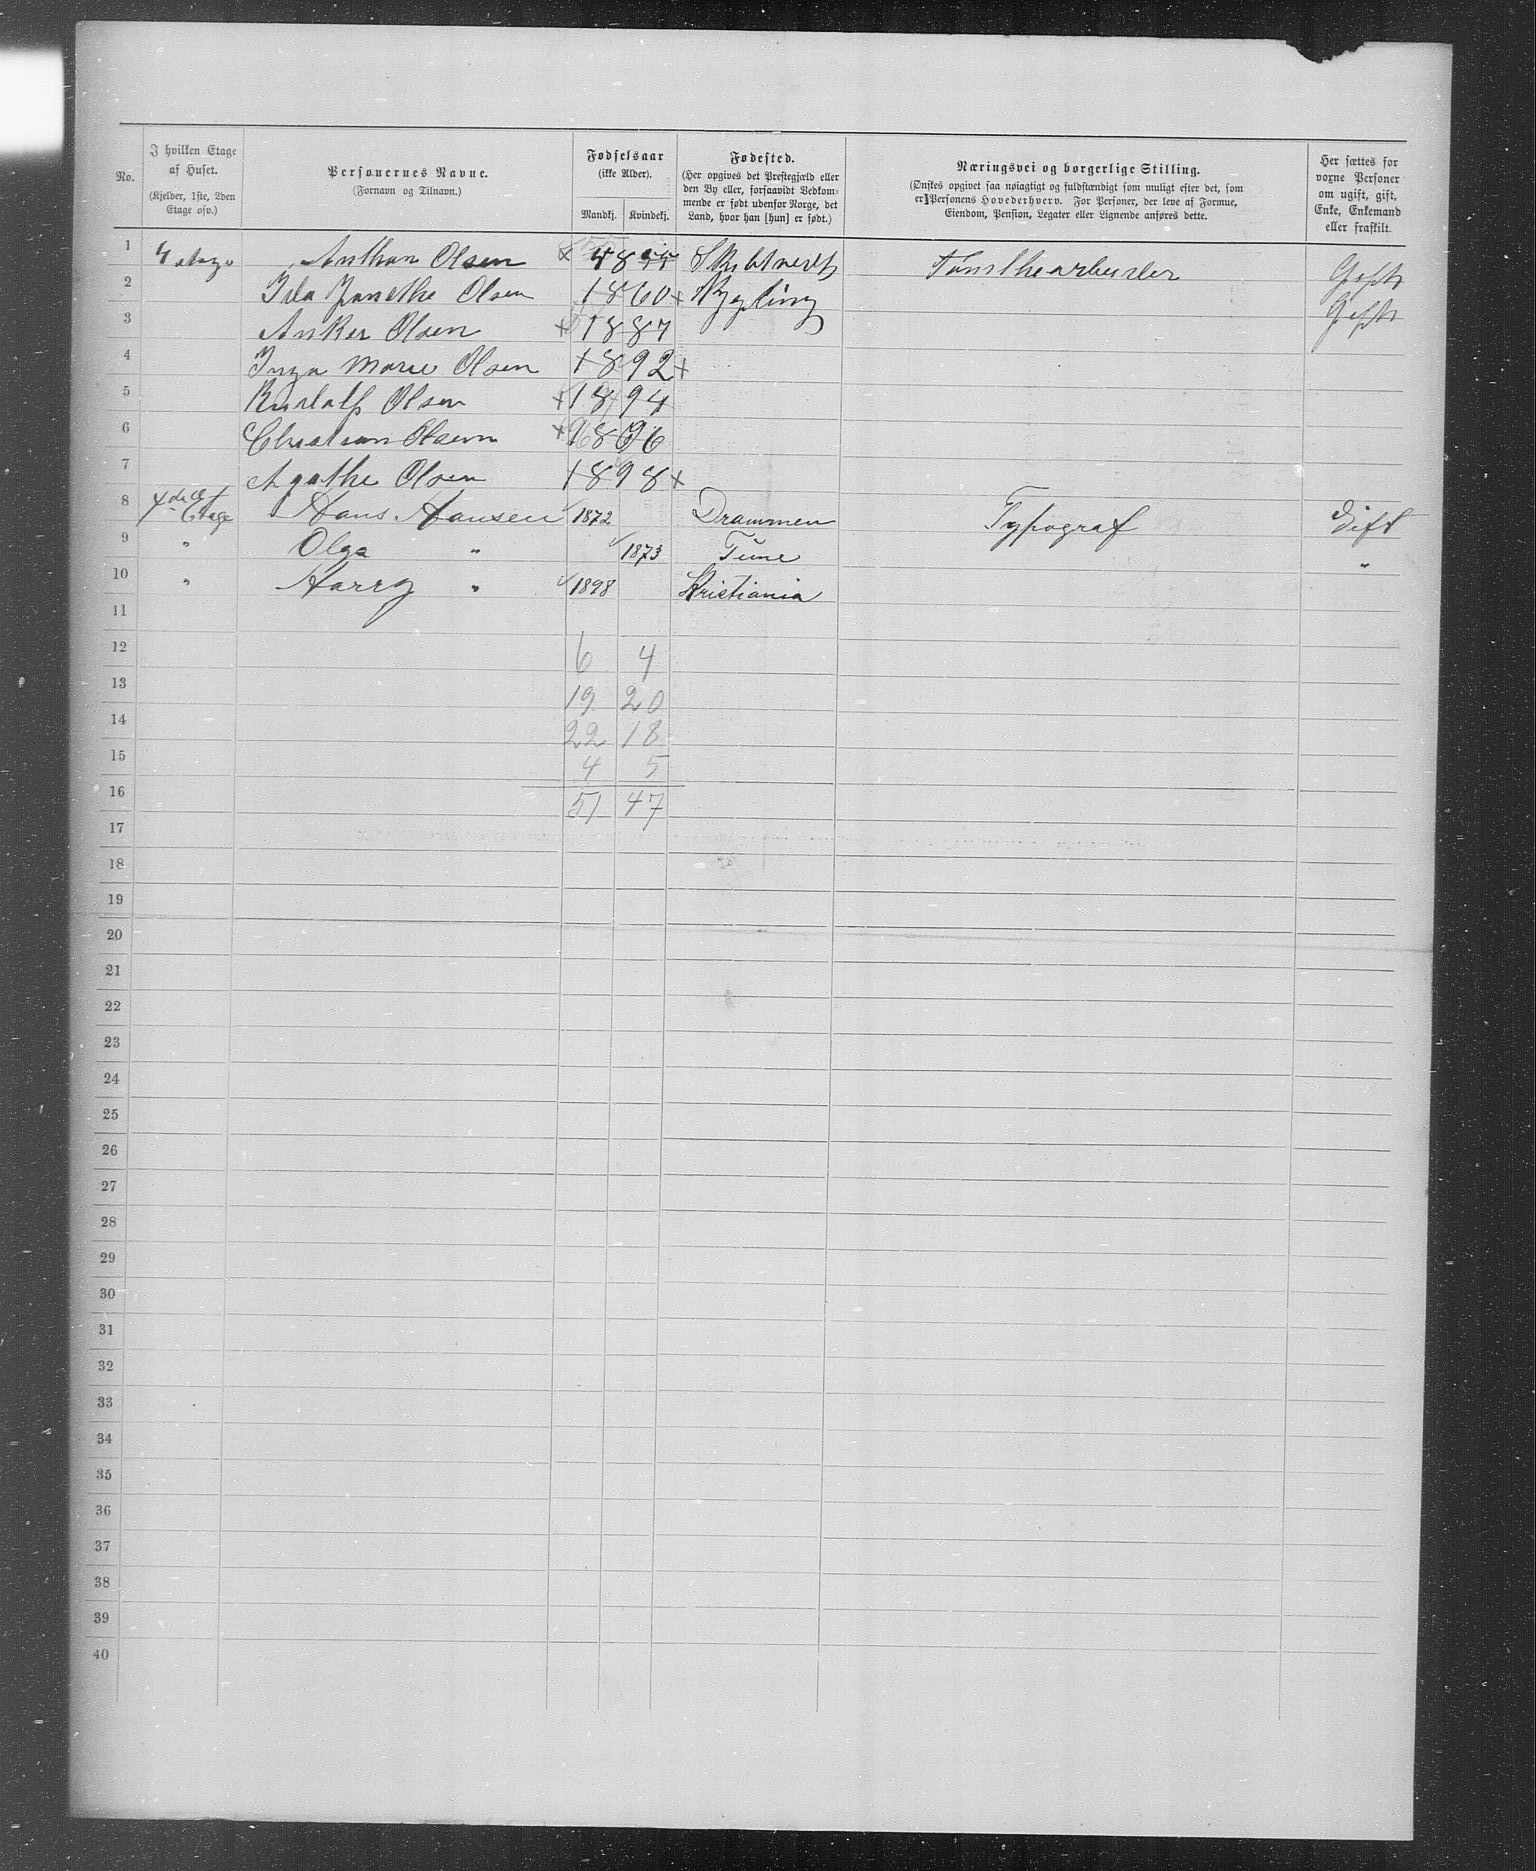 No.
I hvilken Etage
af Huset.
(Kjelder, 1ste, 2den
Etage osv.)
Personernes Navne.
(Fornavn og Tilnavn.)
Fødselsaar
(ikke Alder).
Mandkj. Kvindekj.
Fødested.
(Her opgives det Prestegjæld eller
den By eller, forsaavidt Vedkom-
mende er født udenfor Norge, det
Land, hvor han [hun] er født.)
Næringsvei og borgerlige Stilling.
(Ønskes opgivet saa nøiagtigt og fuldstændigt som muligt efter det, som
er Personens Hovederhverv. For Personer, der leve af Formue,
Eiendom, Pension, Legater eller Lignende anføres dette.
Her sættes for
vorne Personer
om ugift, gift,
Enke, Enkemand
eller fraskilt.
1 4 etage Anthon Olsen × Gift
2 Ida Janethe Olsen 1860 × Rygling Gift
3 Anker Olsen × 1887
4 Inga Marie Olsen 1892 ×
5 Rudolf Olsen × 1894
6 Christian Olsen × 1896
7 Agathe Olsen 1898 ×
8 4de Etage Hans Hansen 1872 Drammen Typograf Gift
9 " Olga " 1873 Tune "
10 " Harry " 1898 Kristiania
11
12 6 4
13 19 20
14 22 18
15 4 5
16 51 47
17
18
19
20
21
22
23
24
25
26
27
28
29
30
31
32
33
34
35
36
37
38
39
40